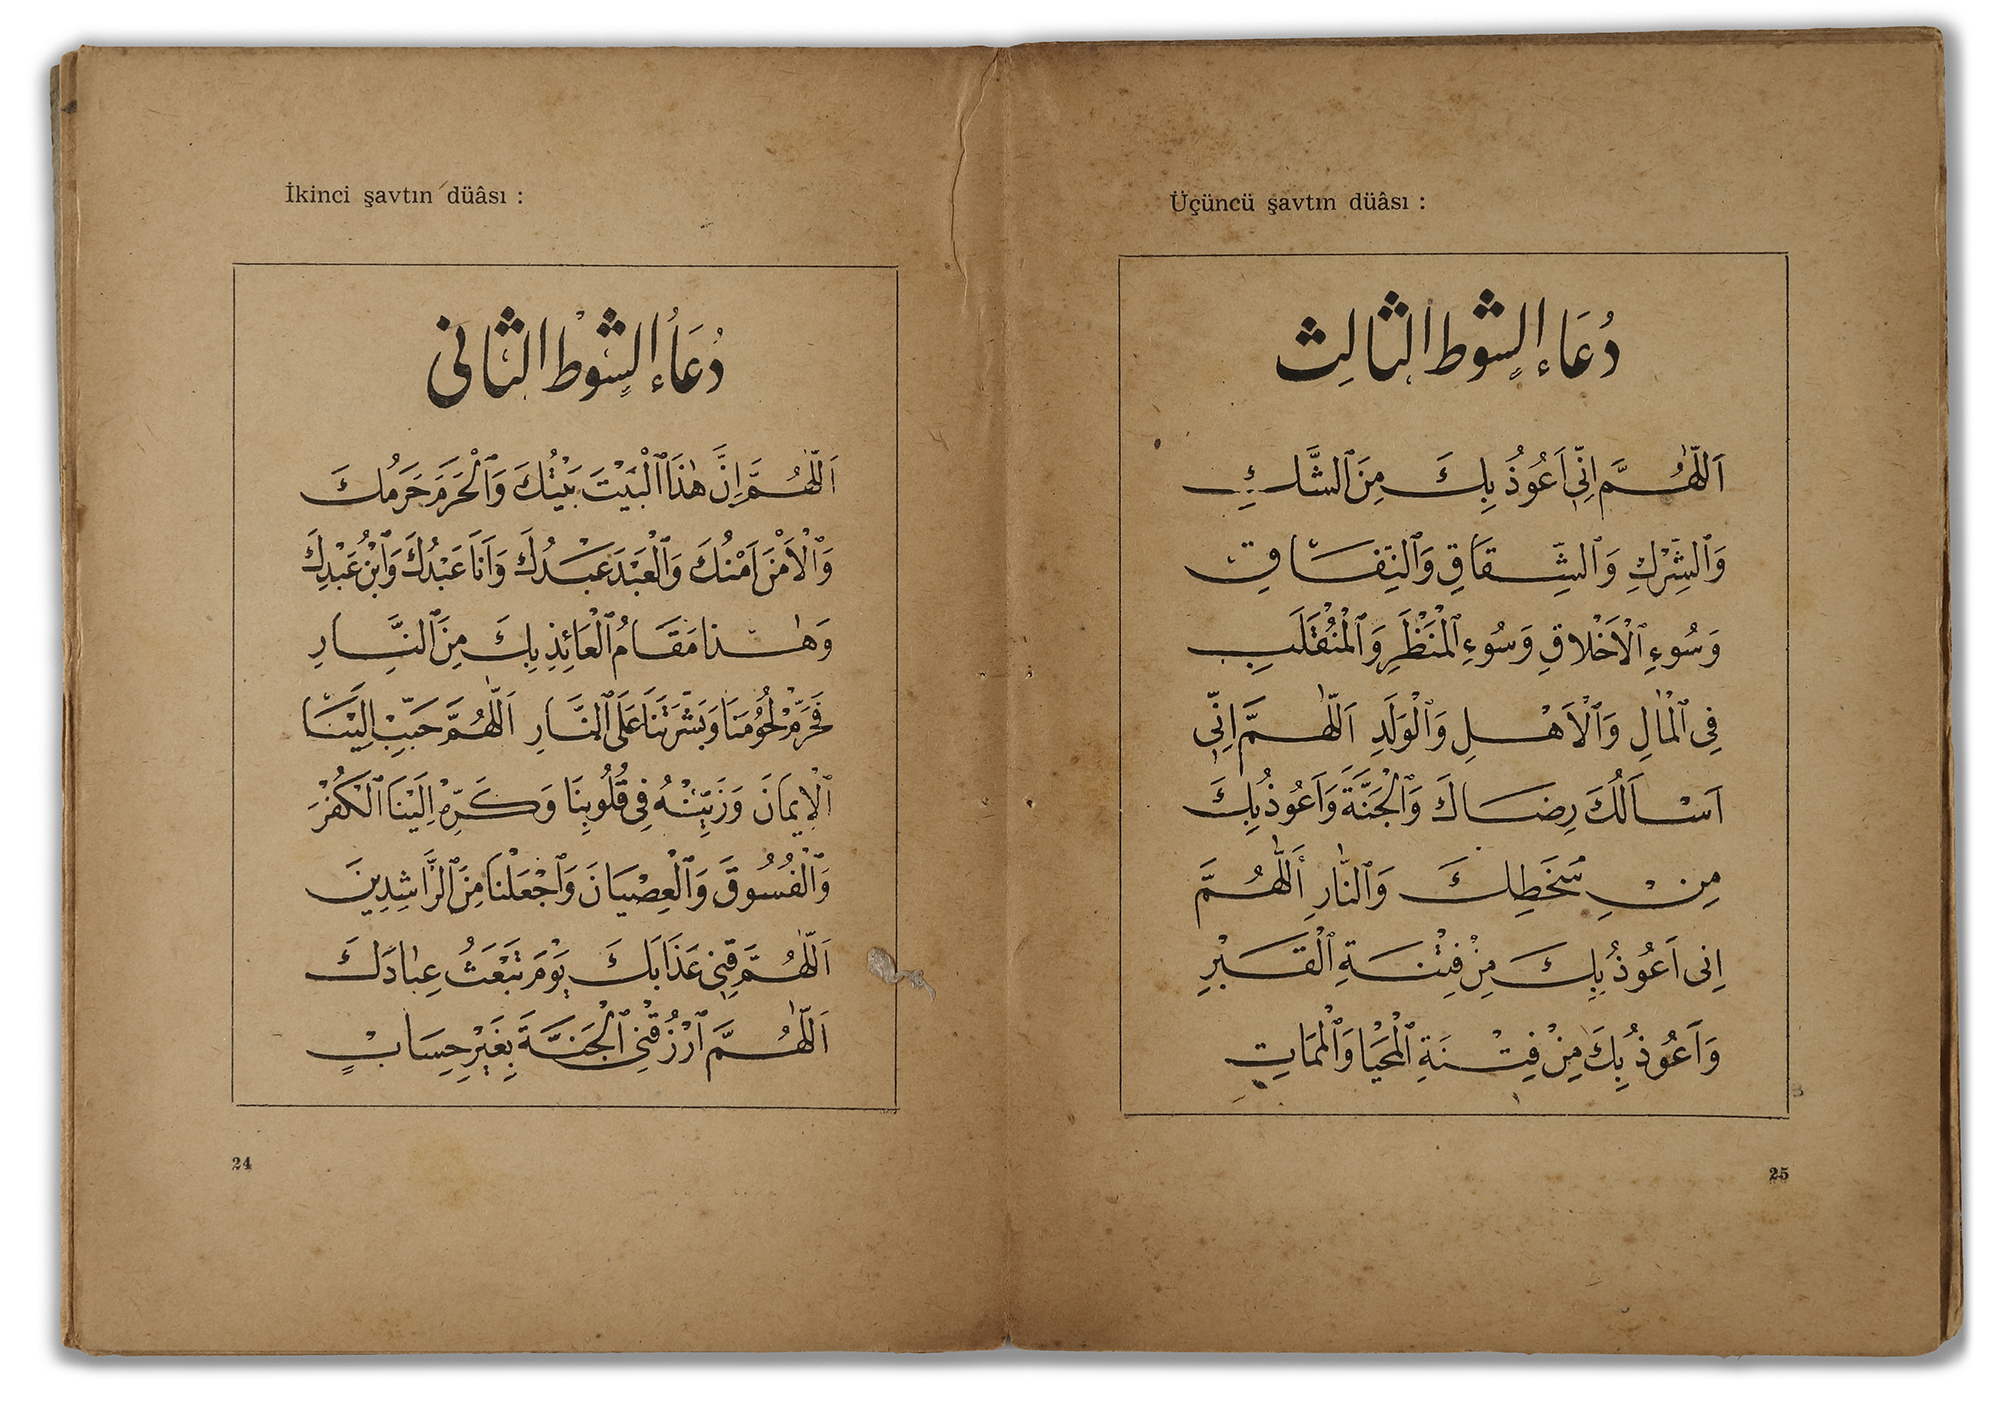 İkinci şavtın düâsı :
دُعَاءُ الشَّوْطِ الثَّانِي
اَللّٰهُمَّ اِنَّ هٰذَا الْبَيْتَ بَيْتُكَ وَالْحَرَمَ حَرَمُكَ
وَالْاَمْنَ اَمْنُكَ وَالْعَبْدَ عَبْدُكَ وَاَنَا عَبْدُكَ وَابْنُ عَبْدِكَ
وَهٰذَا مَقَامُ الْعَائِذِ بِكَ مِنَ النَّارِ
فَحَرِّمْ لُحُومَنَا وَبَشَرَتَنَا عَلَى النَّارِ اَللّٰهُمَّ حَبِّبْ اِلَيْنَا
الْاِيمَانَ وَزَيِّنْهُ فِي قُلُوبِنَا وَكَرِّهْ اِلَيْنَا الْكُفْرَ
وَالْفُسُوقَ وَالْعِصْيَانَ وَاجْعَلْنَا مِنَ الرَّاشِدِينَ
اَللّٰهُمَّ قِنِي عَذَابَكَ يَوْمَ تَبْعَثُ عِبَادَكَ
اَللّٰهُمَّ ارْزُقْنِي الْجَنَّةَ بِغَيْرِ حِسَابٍ
24
Üçüncü şavtın düâsı :
دُعَاءُ الشَّوْطِ الثَّالِثِ
اَللّٰهُمَّ اِنِّي اَعُوذُ بِكَ مِنَ الشَّكِّ
وَالشِّرْكِ وَالشِّقَاقِ وَالنِّفَاقِ
وَسُوءِ الْاَخْلَاقِ وَسُوءِ الْمَنْظَرِ وَالْمُنْقَلَبِ
فِي الْمَالِ وَالْاَهْلِ وَالْوَلَدِ اَللّٰهُمَّ اِنِّي
اَسْاَلُكَ رِضَاكَ وَالْجَنَّةَ وَاَعُوذُ بِكَ
مِنْ سَخَطِكَ وَالنَّارِ اَللّٰهُمَّ
اِنِي اَعُوذُ بِكَ مِنْ فِتْنَةِ الْقَبْرِ
وَاَعُوذُ بِكَ مِنْ فِتْنَةِ الْمَحْيَا وَالْمَمَاتِ
25